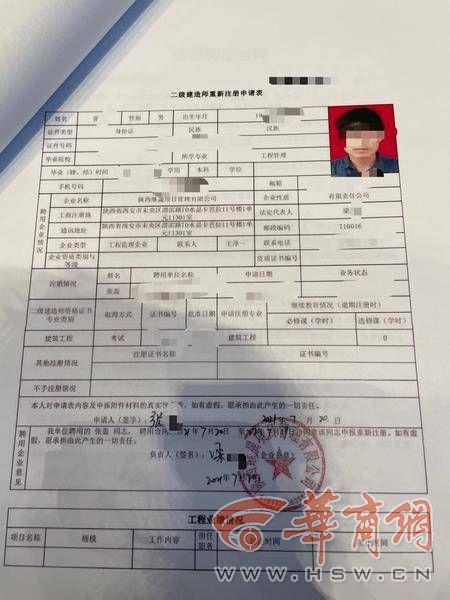 二级建造师重新注册申请表
姓名 性别 男 出生年月 19
证件类型 身份证 民族
证件号码
毕业院校 所学专业 工程管理
毕业(肄、结)时间 学历 本科 学位
手机号码 邮箱
聘用企业情况
企业名称 项目管理有限公司 企业性质 有限责任公司
工商注册地 陕西省西安市未央区 渭滨路70水晶卡芭拉11号楼1单元11301室 法定代表人 梁
通讯地址 陕西省西安市未央区 渭滨路70水晶卡芭拉11号楼1单元11301室 邮政编码 710016
企业类型 工程监理企业 联系人 王泽一 联系电话
企业资质类别与等级 资质证书编号
注销情况 姓名 聘用单位名称 申请日期 业务状态
张磊
二级建造师资格证书专业类别 取得方式 证书编号 批准日期 申请注册专业 继续教育情况(逾期注册时)
必修课(学时) 选修课(学时)
建筑工程 考试 建筑工程 0
其他注册情况 注册证书名称 证书编号
不予注册情况
本人对申请表内容及申报附件材料的真实性 如有虚假,愿承担由此产生的一切责任。
申请人(签字) 张 2021年7月20日
聘用企业意见
我单位聘用的 张磊 同志, 聘用合同 21年7月20日 至 同意该同志申报重新注册。如有虚假,愿承担由此产生的一切责任。
负责人(签名): 梁
2021年7月20日
工程业绩情况
项目名称 规模 工作内容 担任职务 时间
华商网
WWW.HSW.CN